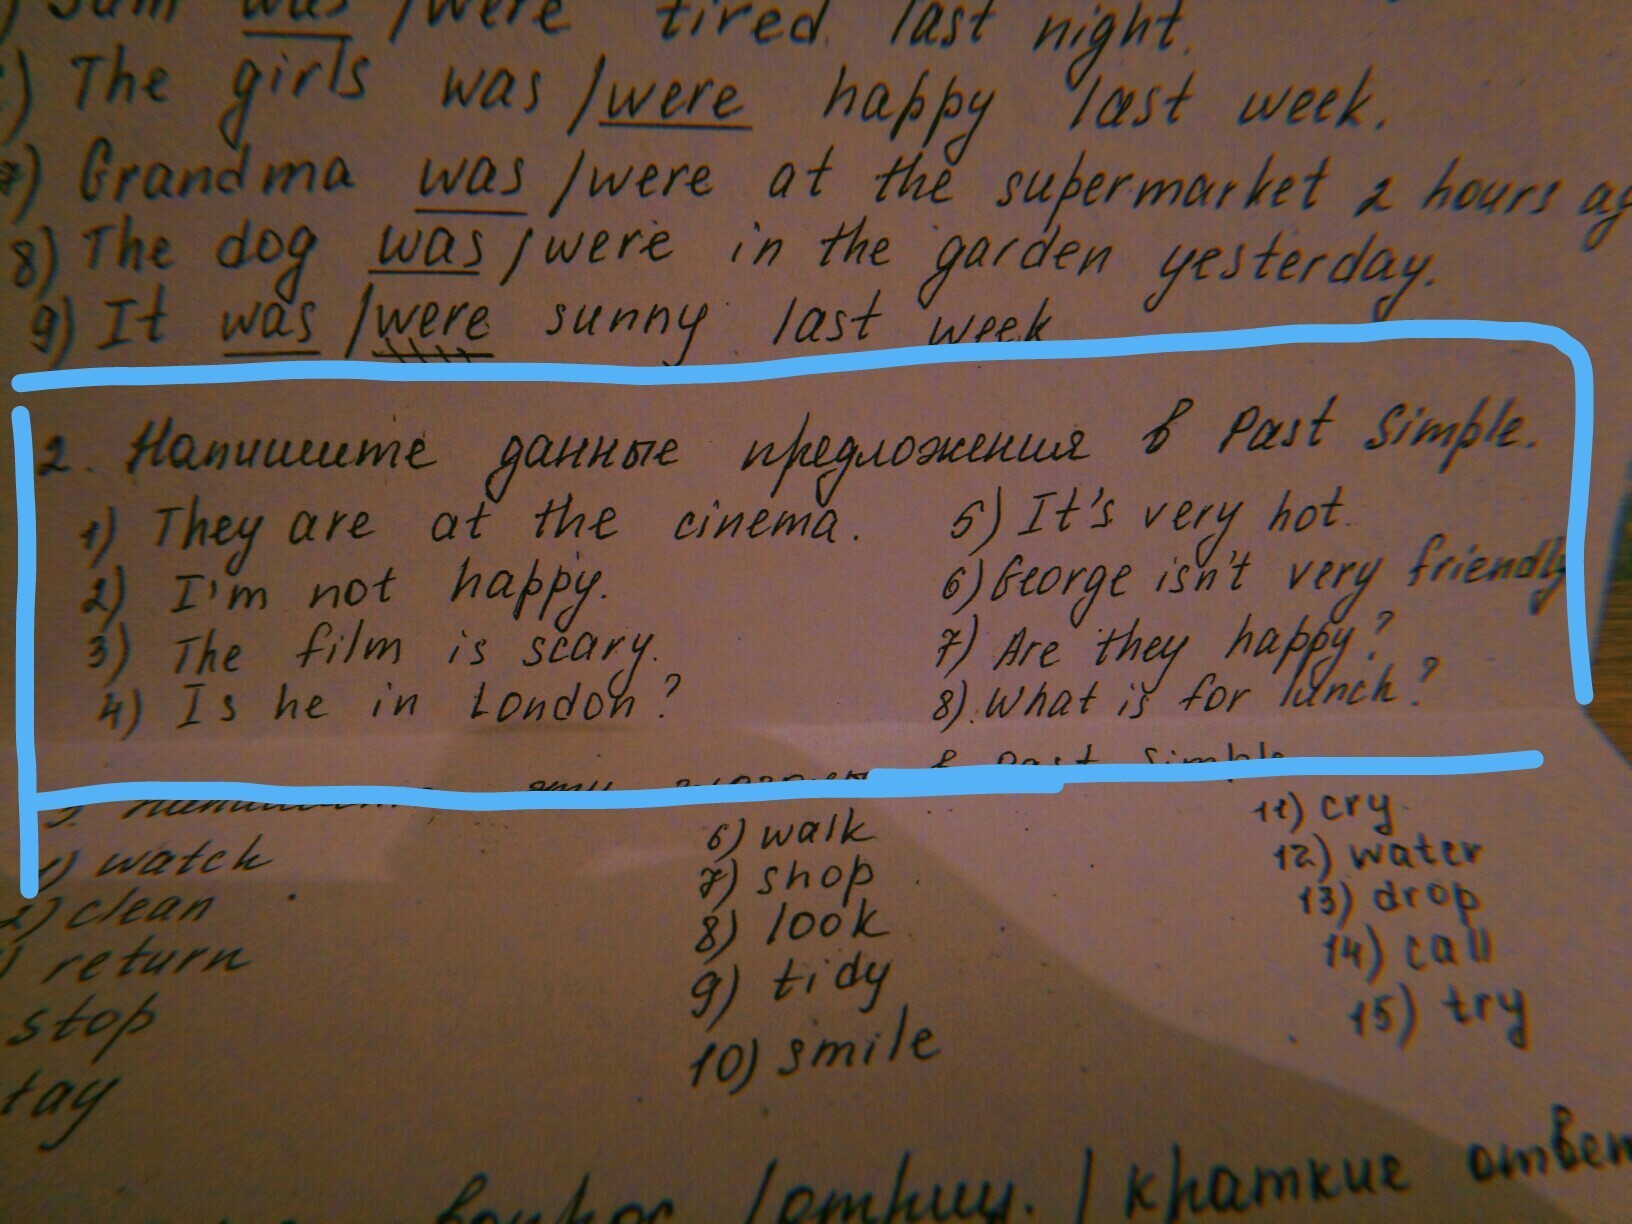 Sam was /were tired last night.
) The girls was /were happy last week.
7) Grandma was /were at the supermarket 2 hours ag
8) The dog was /were in the garden yesterday.
9) It was /were sunny last week
2. Напишите данные предложения в Past Simple.
1) They are at the cinema.
2) I'm not happy.
3) The film is scary.
4) Is he in London?
5) It's very hot.
6) George isn't very friendly
7) Are they happy?
8) What is for lunch?
3. Напишите эти глаголы в Past Simple
1) watch
2) clean
) return
stop
tay
6) walk
7) shop
8) look
9) tidy
10) smile
11) cry
12) water
13) drop
14) call
15) try
вопрос /отриц. / краткие ответ